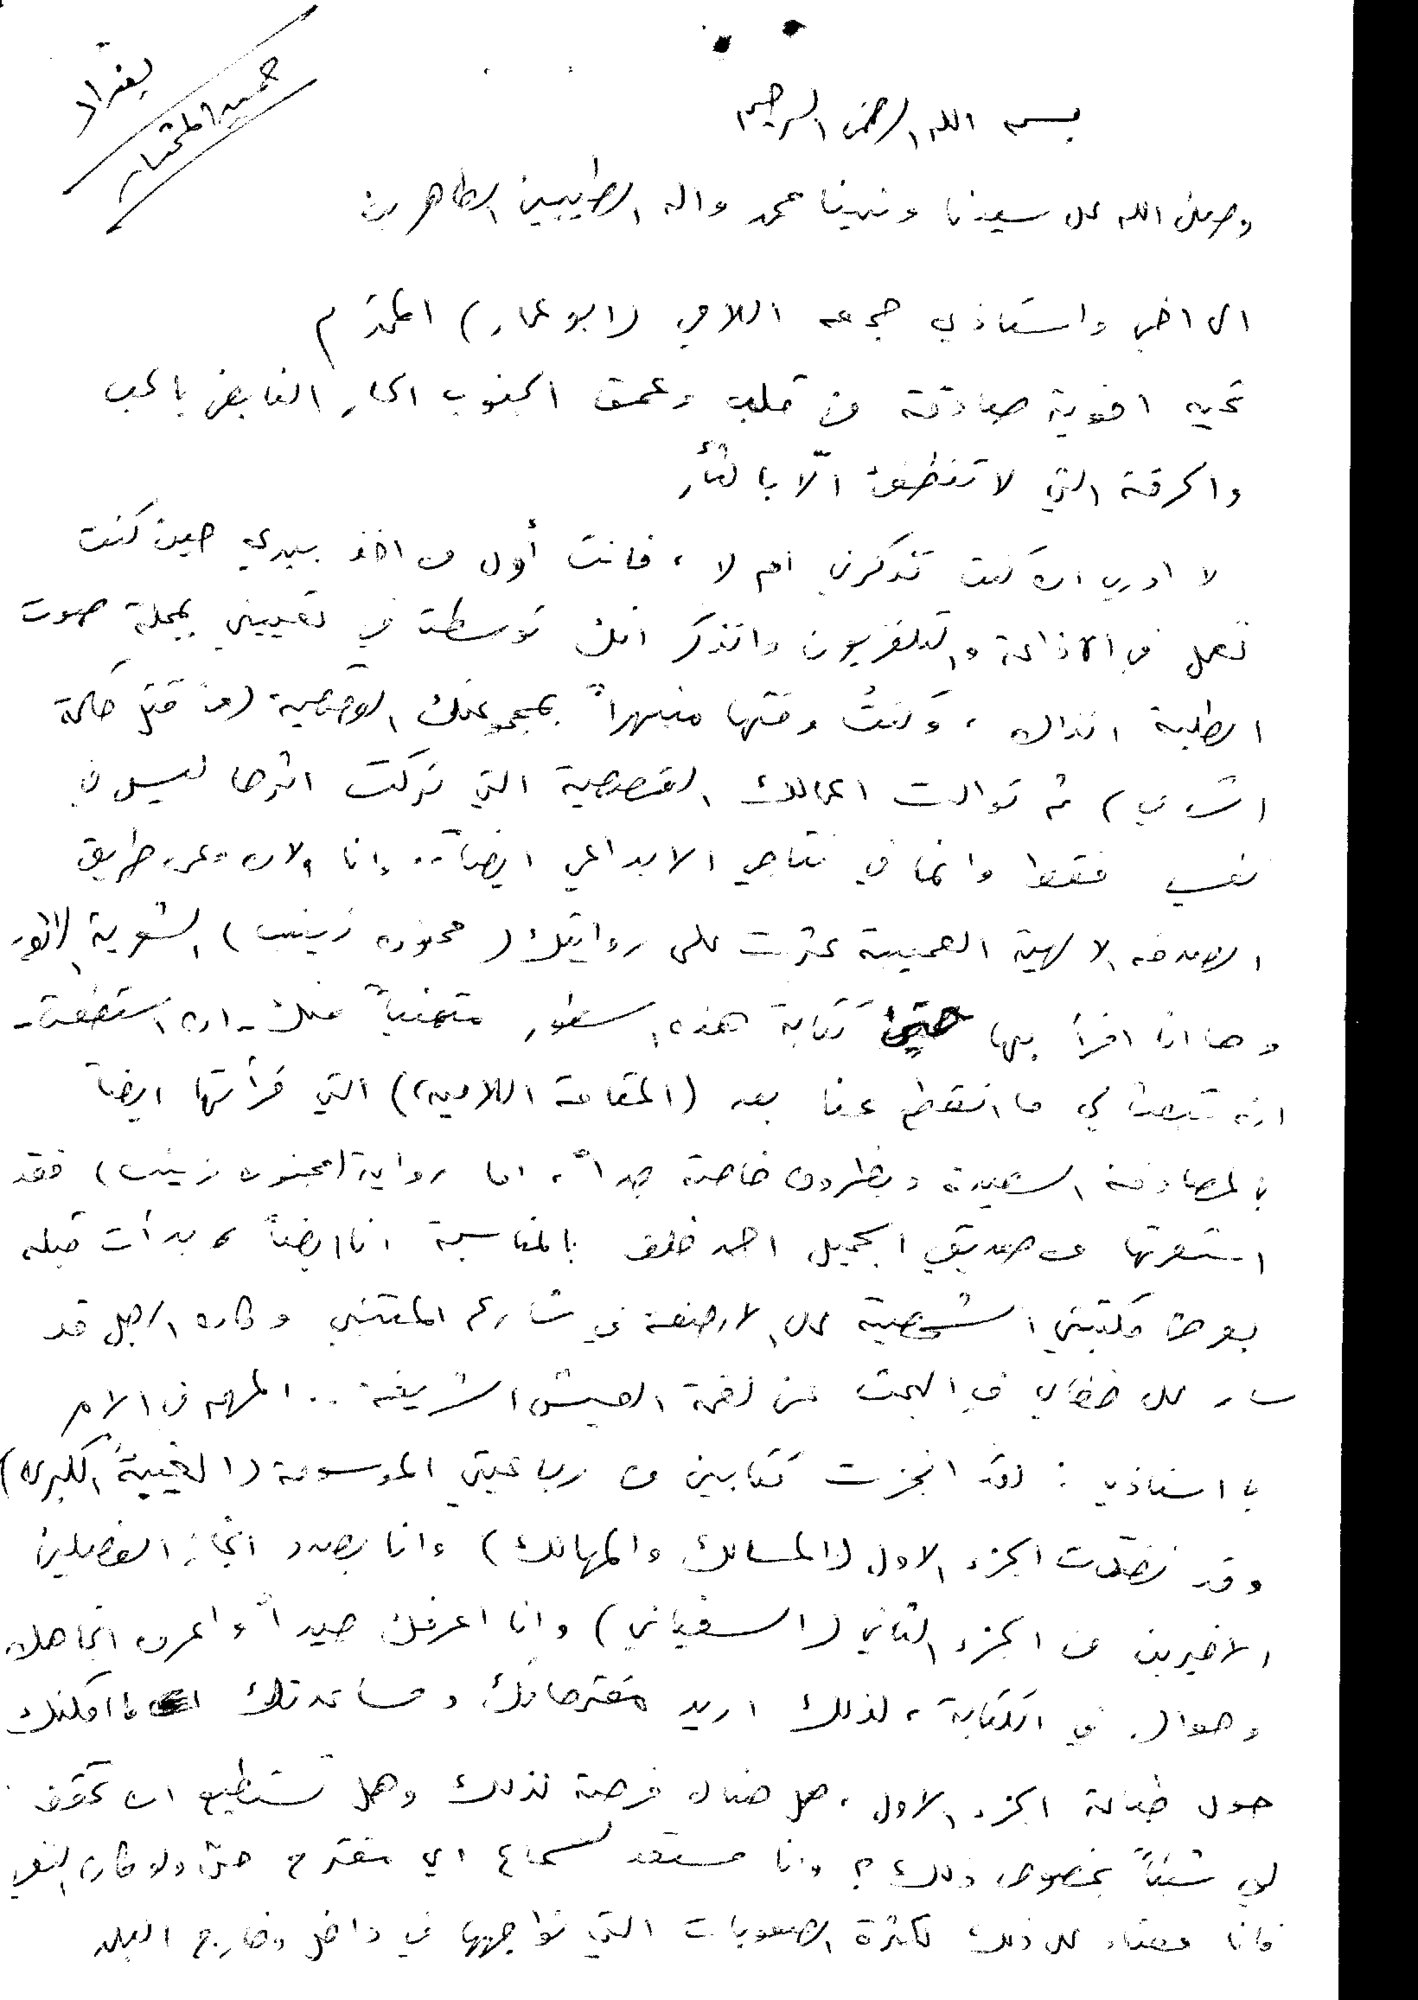 بغداد
حميد المختار
بسم الله الرحمن الرحيم
وصلى الله على سيدنا ونبينا محمد واله الطيبين الطاهرين
الى اخي واستاذي جمعه اللامي (ابو عمار) المحترم
تحيه اخوية صادقة من قلب وعمق الجنوب الحار الفايض بالحب
والحرقة التي لا تنطفئ الّا بالثأر
لا ادري ان كنت تتذكرني ام لا، فانت أول من اخذ بيدي حين كنت
تعمل في الاذاعة والتلفزيون واتذكر انك توسطت في تعييني بمجلة صوت
الطلبة انذاك، وكنتُ وقتها منبهراً بمجموعتك القصصية (من قتل حكمة
الشامي) ثم توالت اعمالك القصصية التي تركت اثرها ليس في
نفسي فقط وانما في نتاجي الابداعي ايضاً.. وانا الان وعن طريق
الصدفه الالهية العجيبة عثرت على روايتك (مجنون زينب) الشعرية
وها انا اقرأ بها حتى كتابة هذه السطور متمنياً منك - ان استطعت -
ان تبعث لي ما انقطع عنا بعد (المقامة اللامية) التي قرأتها ايضاً
بالمصادفة السعيدة وبظروف خاصة جداً، اما رواية (مجنون زينب) فقد
استعرتها من صديقي الجميل احمد خلف بالمناسبة انا ايضاً بدأت قبله
بعرض مكتبتي الشخصية على الارصفة في شارع المتنبي وكان الرجل قد
سار على خطاي في البحث عن لقمة العيش الشريفة .. المهم في الامر
يا استاذي: لقد انجزت كتابين من رباعيتي الموسومة (الغيبة الكبرى)
وقد نضّدت الجزء الاول (المسالك والمهالك) وانا بصدد انجاز الفصلين
الاخيرين من الجزء الثاني (السفياني) وانا اعرفك جيداً واعرف اتجاهك
وهواك في الكتابة، لذلك اريد مقترحاتك ومساعدتك ما امكنك
حول طباعة الجزء الاول، هل هناك فرصة لذلك وهل تستطيع ان تحقق
لي شيئاً بخصوص ذلك؟ وانا مستعد لسماع اي مقترح حتى ولو كان النفي
فانا معتاد على ذلك لكثرة الصعوبات التي نواجهها في داخل وخارج البلد